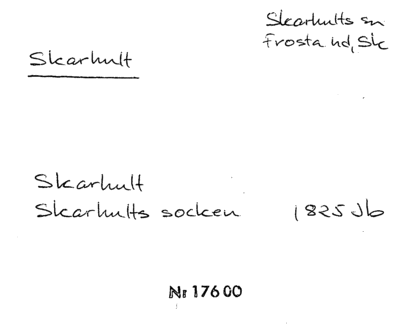 Skarhults sn
Frosta hd, Sk
Skarhult
Skarhult
Skarhults socken 1825 Jb
Nr 17600